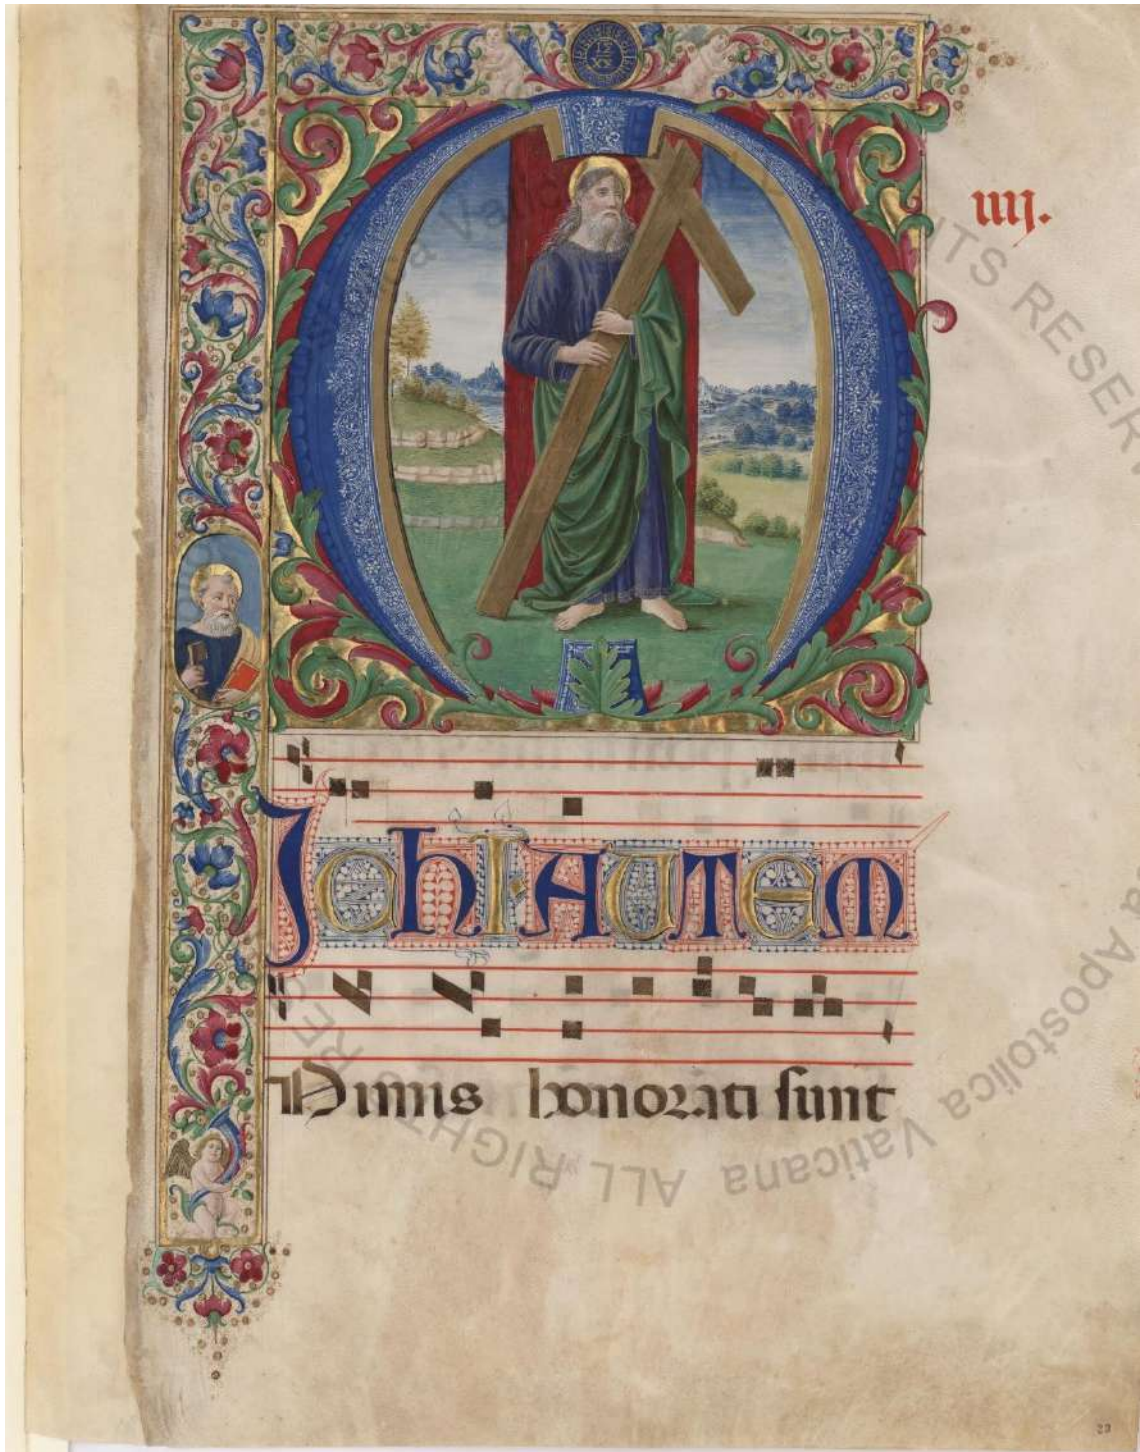 iiij.
M
IChI AUTEM
Nimis honorati sunt
Apostolica Vaticana ALL RIGHTS RESER
23